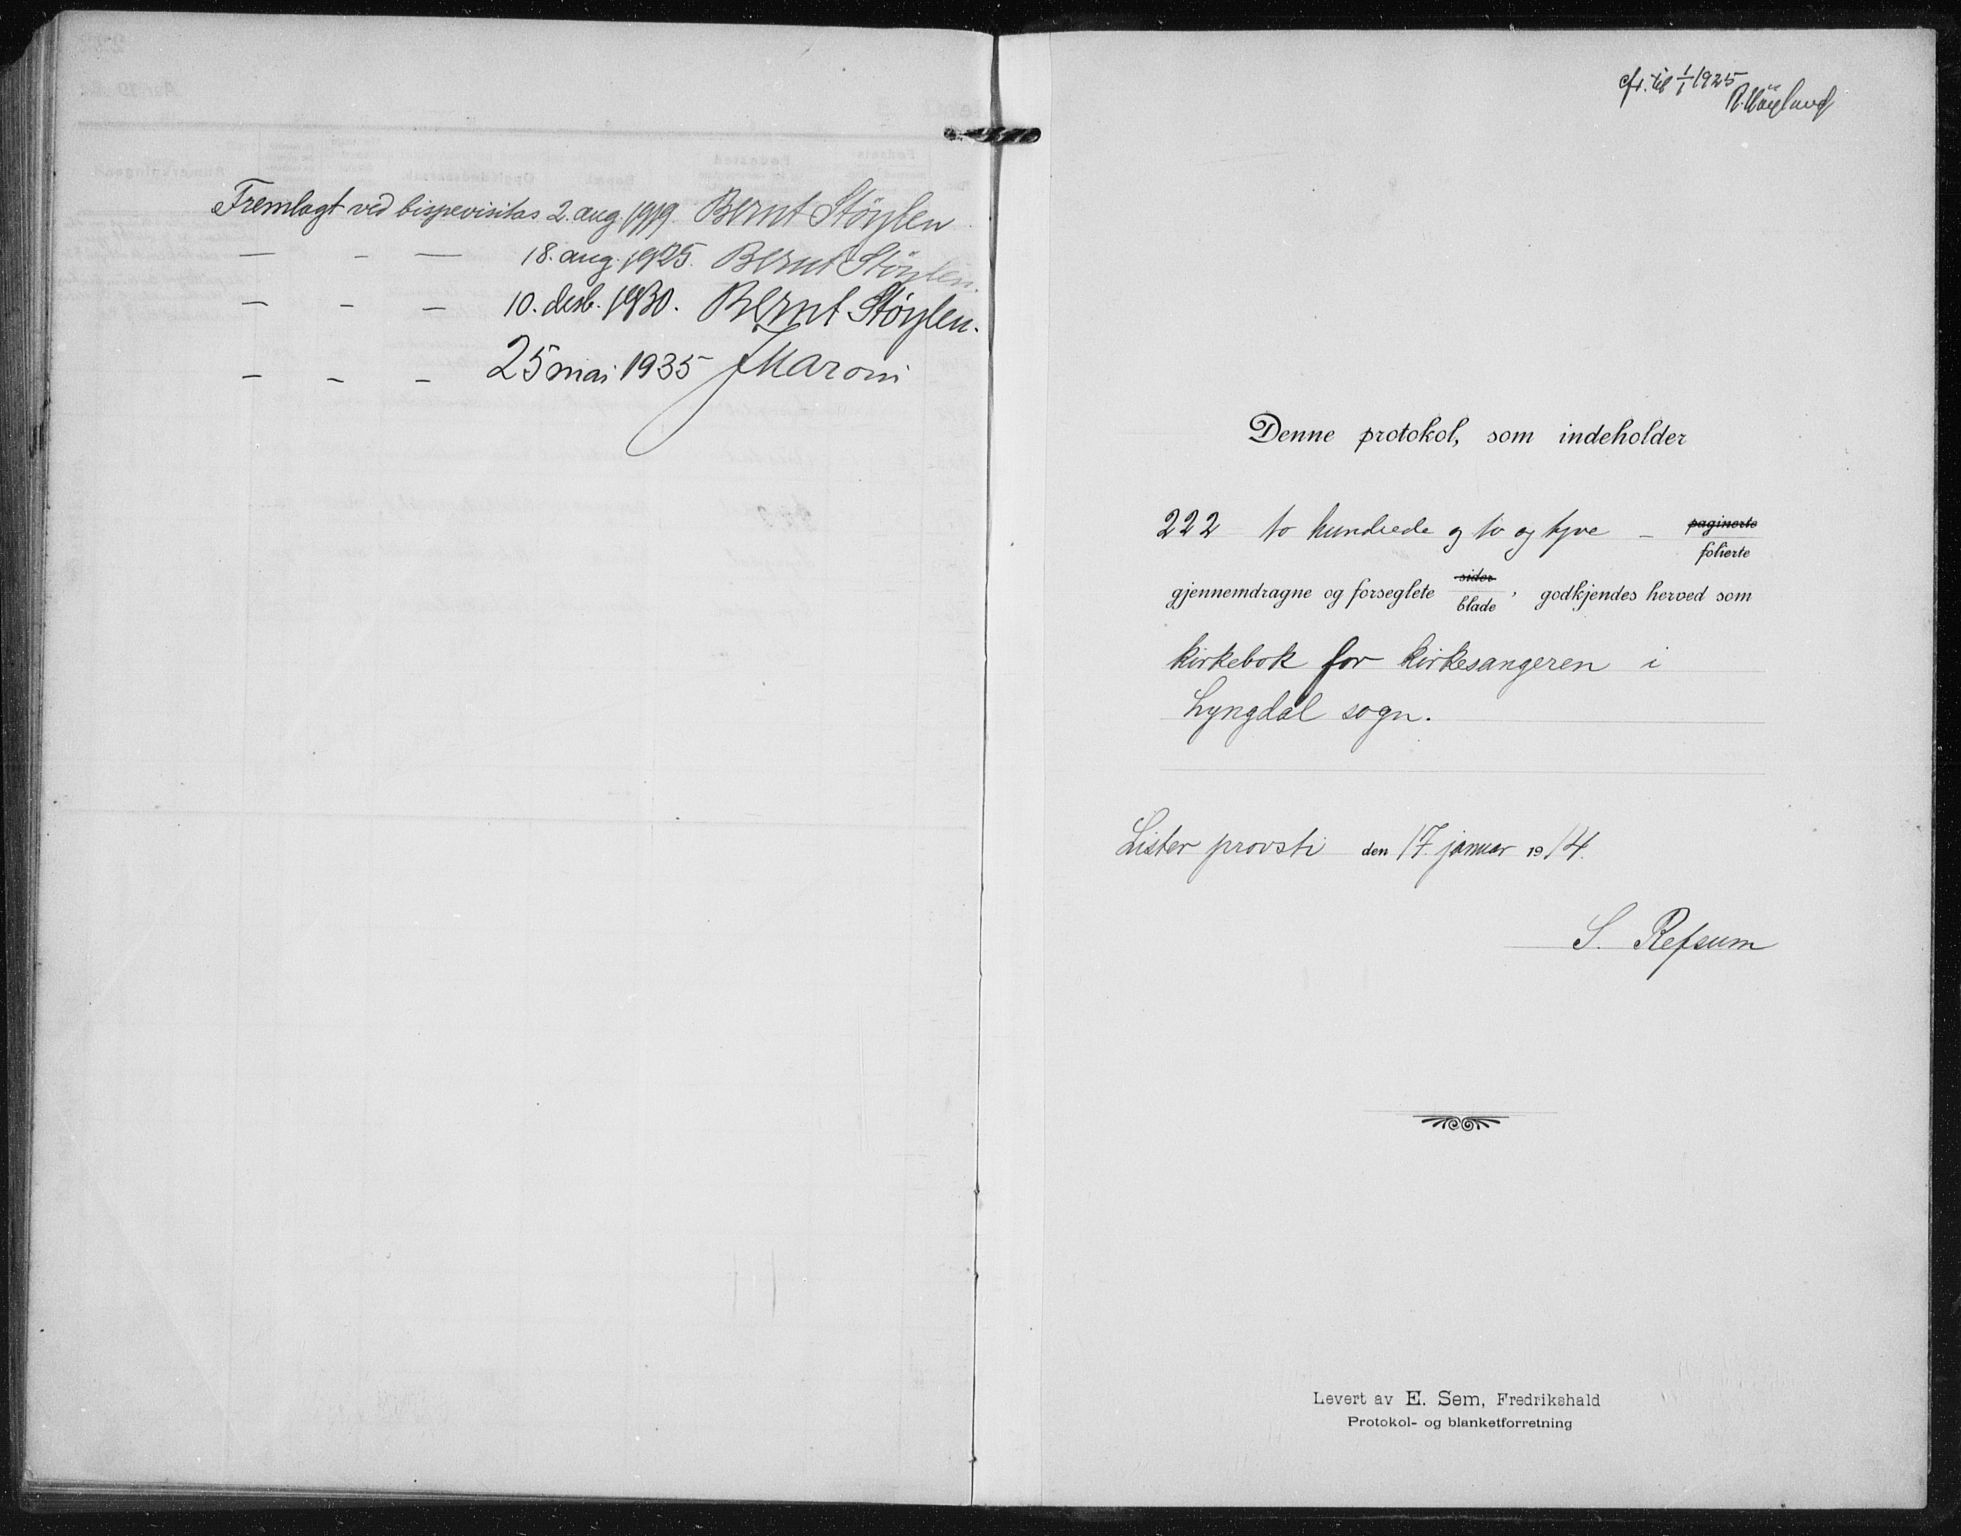 Fremlagt ved bispevisitas 2. aug. 1919. Bernt Støylen
— - — 18. aug. 1925. Bernt Støylen.
- - - 10. desb. 1930. Bernt Støylen.
- - - 25 mai 1935 J Maroni
cfr. til 1/1 1925
Denne protokol, som indeholder
222 to hundrede og to og tyve - paginerte
folierte
gjennemdragne og forseglete sider blade, godkjendes herved som
kirkebok for kirkesangeren i
Lyngdal sogn.
Lister provsti den 17. januar 1914.
S. Refsum
Levert av E. Sem, Fredrikshald
Protokol- og blanketforretning